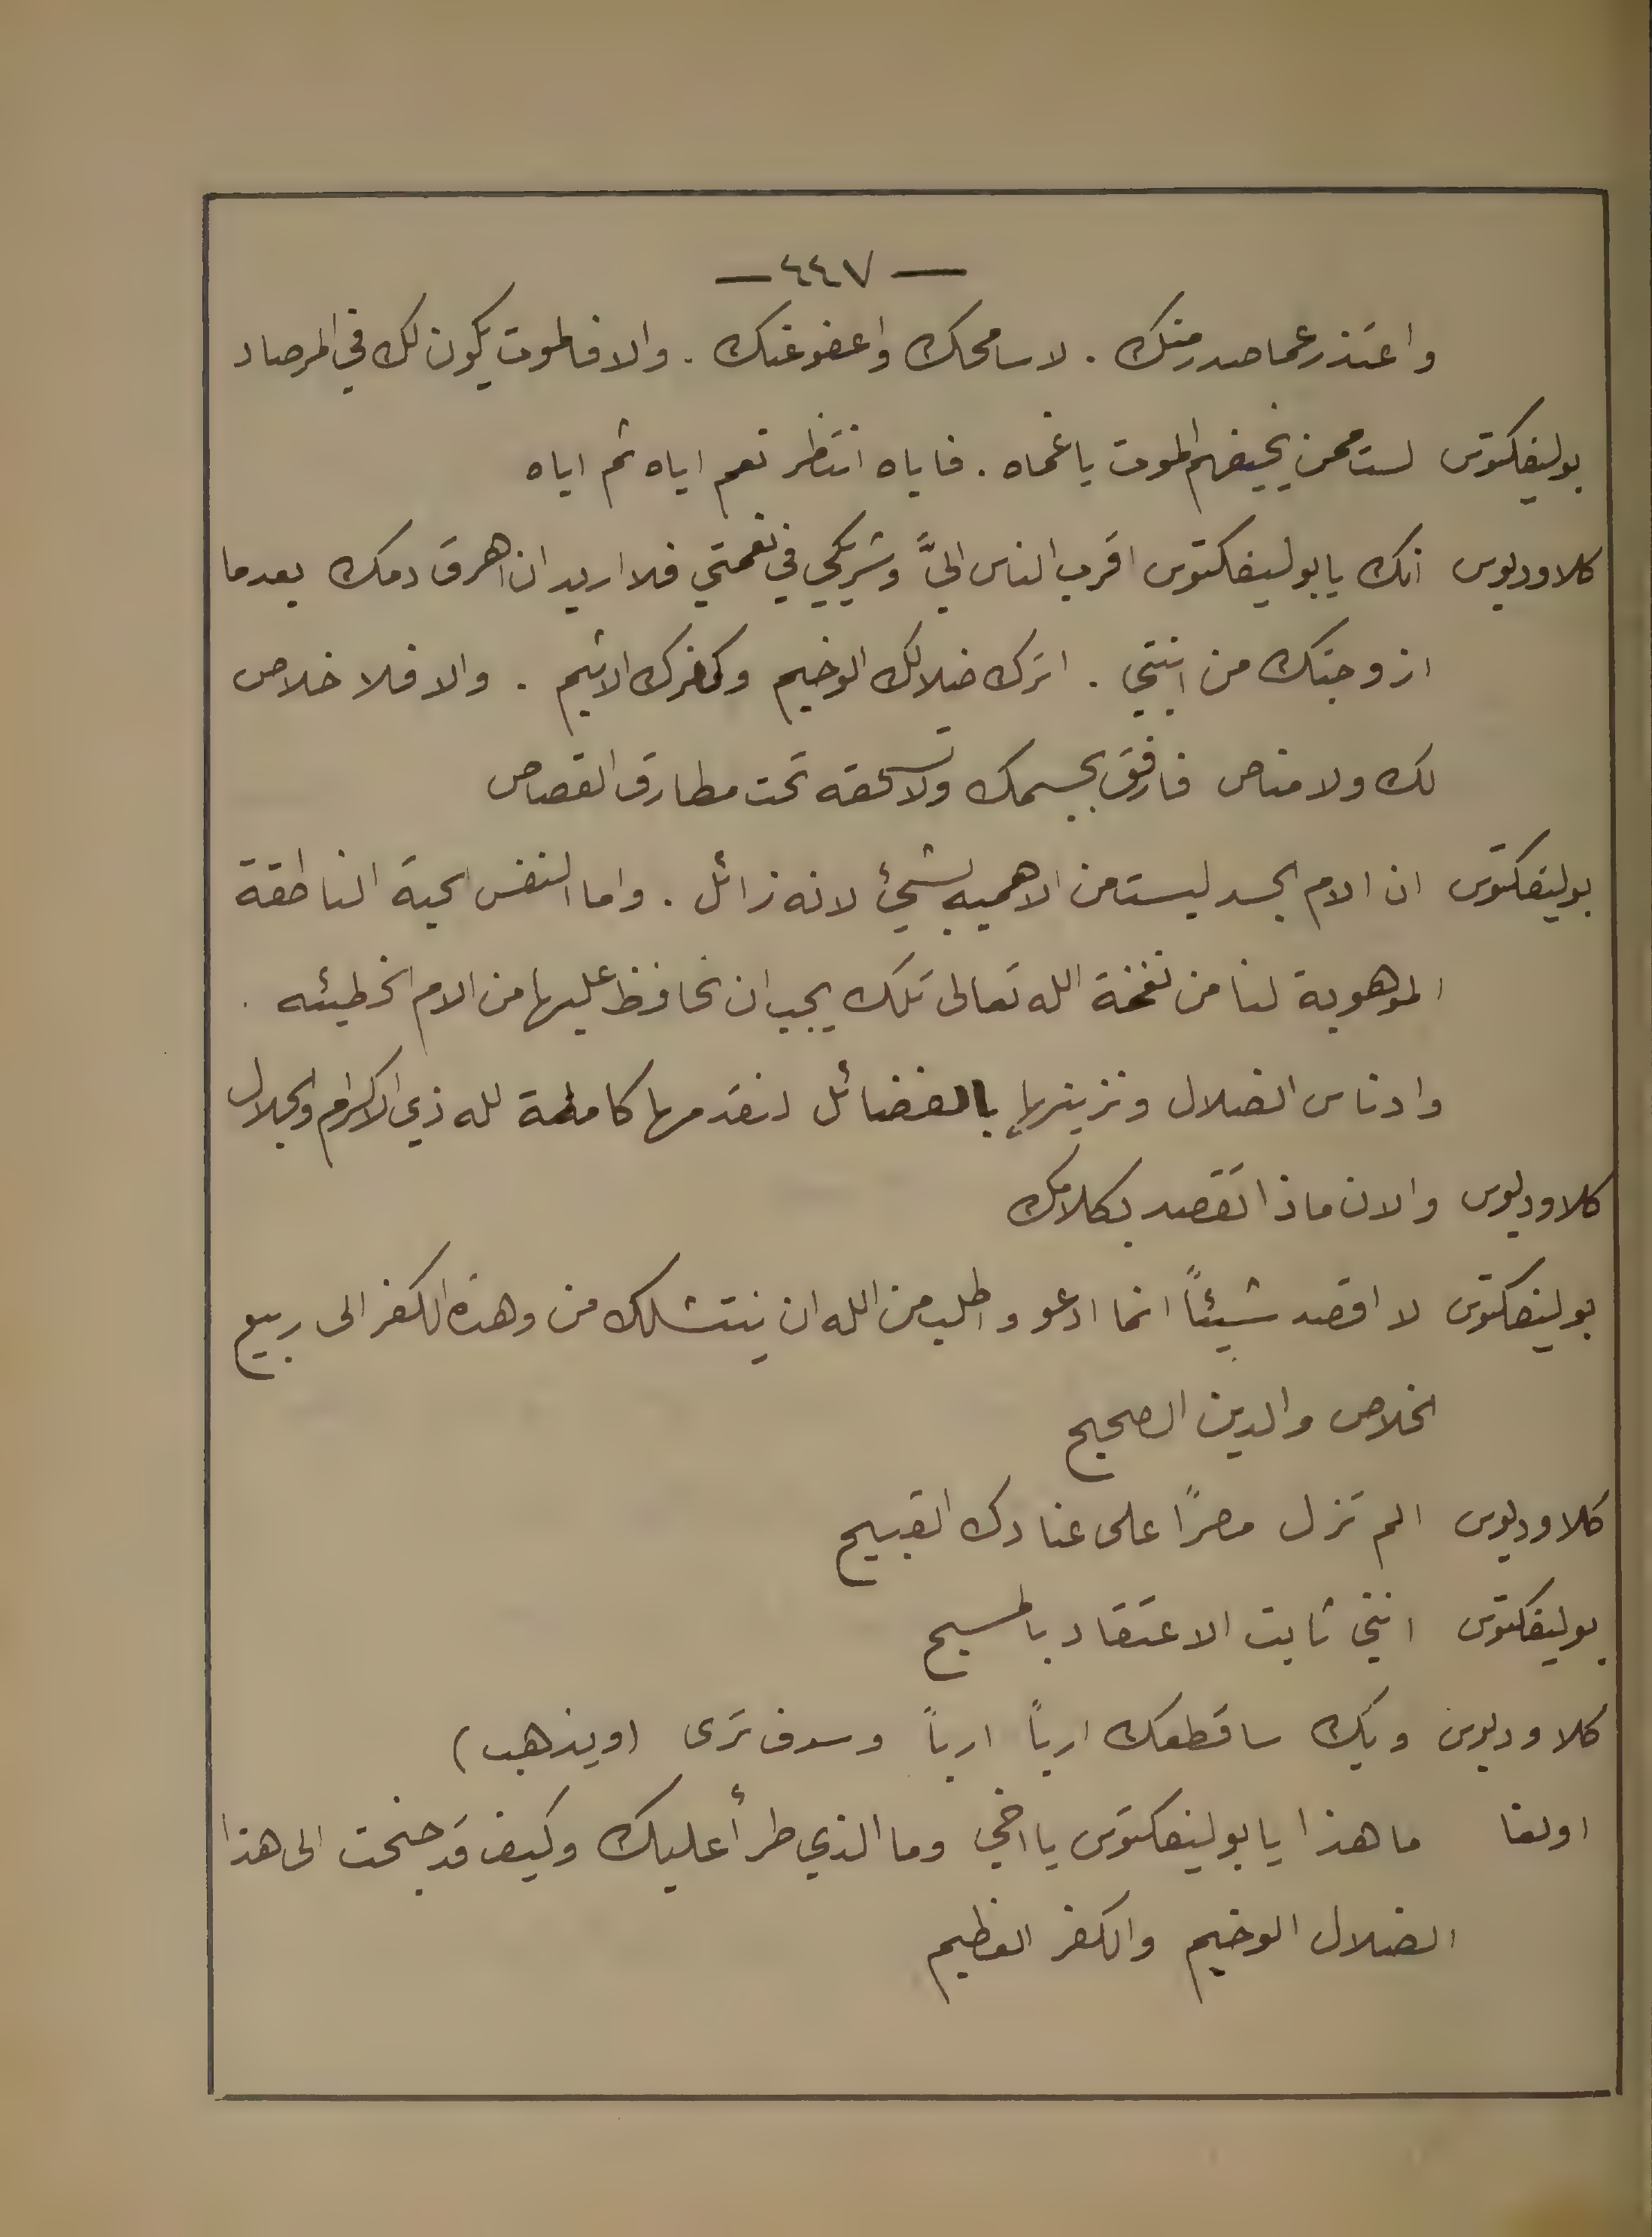 — ٤٤٧ —
واعتذر عما صدر منك . لاسامحك واعفو عنك . والا فالموت يكون لك في المرصاد
بوليفكتوس لست ممن يخيفهم الموت ياعماه . فاياه انتظر نعم اياه ثم اياه
كلاوديوس انك يا بوليفكتوس اقرب الناس اليَّ وشريكي في نعمتي فلا اريد ان اهرق دمك بعدما
ازوجتك من ابنتي . اترك ضلالك الوخيم وكفرك الاثيم . والا فلا خلاص
لك ولا مناص فارفق بجسمك ولا تسحقه تحت مطارق القصاص
بوليفكتوس ان الام الجسد ليست من الاهميه بشيئ لانه زائل . واما النفس الحية الناطقة
الموهوبة لنا من نفخة الله تعالى تلك يجب ان نحافظ عليها من الام الخطيئه .
وادناس الضلال ونزينها بالفضائل لنقدمها كاملة لله ذي الاكرام والجلال
كلاوديوس والان ماذا تقصد بكلامك
بوليفكتوس لا اقصد شيئاً انما ادعو واطلب من الله ان ينتشلك من وهدة الكفر الى ربيع
الخلاص والدين الصحيح
كلاوديوس الم تزل مصرًا على عنادك القبيح
بوليفكتوس انني ثابت الاعتقاد بالمسيح
كلاوديوس ويك ساقطعك ارباً ارباً وسوف ترى (ويذهب)
اولغا ما هذا يا بوليفكتوس يا اخي وما الذي طرأ عليك وكيف قد جنحت الى هذا
الضلال الوخيم والكفر العظيم